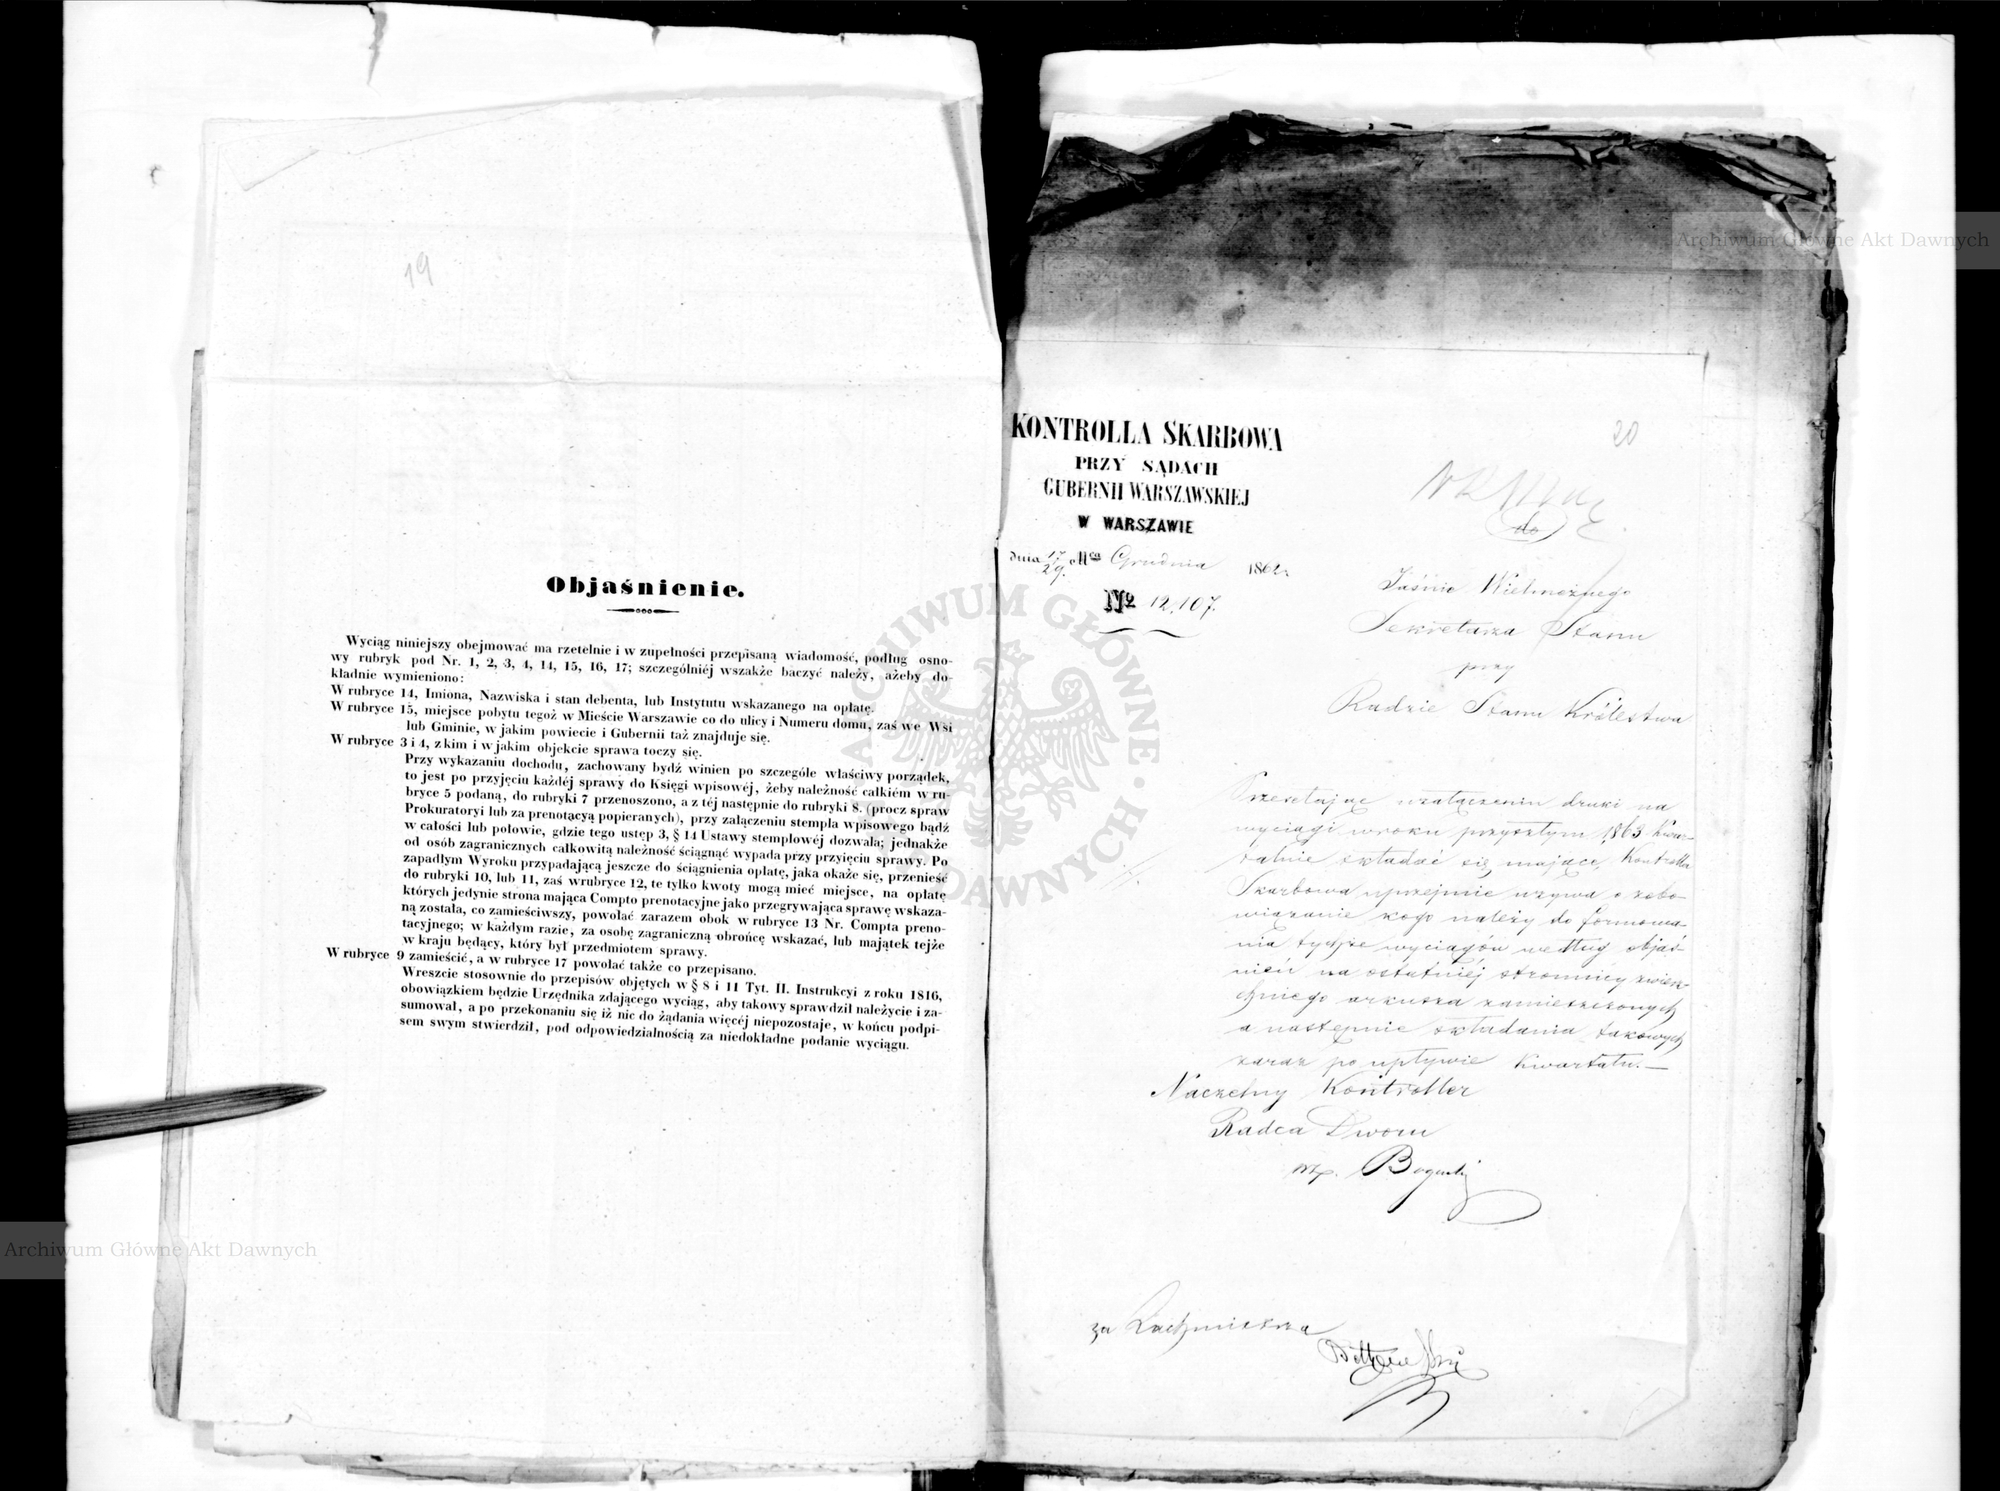 19
Objaśnienie.
Wyciąg niniejszy obejmować ma rzetelnie i w zupełności przepisaną wiadomość, podług osno-
wy rubryk pod Nr. 1, 2, 3, 4, 14, 15, 16, 17; szczególniéj wszakże baczyć należy, ażeby do-
kładnie wymieniono:
W rubryce 14, Imiona, Nazwiska i stan debenta, lub Instytutu wskazanego na opłatę.
W rubryce 15, miejsce pobytu tegoż w Mieście Warszawie co do ulicy i Numeru domu, zaś we Wsi
lub Gminie, w jakim powiecie i Gubernii taż znajduje się.
W rubryce 3 i 4, z kim i w jakim objekcie sprawa toczy się.
Przy wykazaniu dochodu, zachowany bydź winien po szczególe właściwy porządek,
to jest po przyjęciu każdéj sprawy do Księgi wpisowéj, żeby należność całkiém w ru-
bryce 5 podaną, do rubryki 7 przenoszono, a z téj następnie do rubryki 8. (procz spraw
Prokuratoryi lub za prenotacyą popieranych), przy załączeniu stempla wpisowego bądź
w całości lub połowie, gdzie tego ustęp 3, § 14 Ustawy stemplowéj dozwala; jednakże
od osób zagranicznych całkowitą należność ściągnąć wypada przy przyięciu sprawy. Po
zapadłym Wyroku przypadającą jeszcze do ściągnienia opłatę, jaka okaże się, przenieść
do rubryki 10, lub 11, zaś w rubryce 12, te tylko kwoty mogą mieć miejsce, na opłatę
których jedynie strona mająca Compto prenotacyjne jako przegrywająca sprawę wskaza-
ną została, co zamieściwszy, powołać zarazem obok w rubryce 13 Nr. Compta preno-
tacyjnego; w każdym razie, za osobę zagraniczną obrońcę wskazać, lub majątek tejże
w kraju będący, który był przedmiotem sprawy.
W rubryce 9 zamieścić, a w rubryce 17 powołać także co przepisano.
Wreszcie stosownie do przepisów objętych w § 8 i 11 Tyt. II. Instrukcyi z roku 1816,
obowiązkiem będzie Urzędnika zdającego wyciąg, aby takowy sprawdził należycie i za-
sumował, a po przekonaniu się iż nic do żądania więcéj niepozostaje, w końcu podpi-
sem swym stwierdził, pod odpowiedzialnością za niedokładne podanie wyciągu.
KONTROLLA SKARBOWA
PRZY SĄDACH
GUBERNII WARSZAWSKIEJ
W WARSZAWIE
dnia 17/29. Mca Grudnia 1862 r.
No 12,107.
20
do
Jaśnie Wielmożnego
Sekretarza Stanu
przy
Radzie Stanu Królestwa
Przesełając w załączeniu druki na
wyciągi w roku przyszłym 1863 kwar-
talnie składać się mające, Kontrolla
Skarbowa uprzejmie wzywa o zobo-
wiązanie kogo należy do formowa-
nia tychże wyciągów według objaś-
nień na ostatniéj stronnicy zwierz-
chniego arkusza zamieszczonych
a następnie składania takowych
zaraz po upływie kwartału.—
Naczelny Kontroller
Radca Dworu
za Rachmistrza
Archiwum Główne Akt Dawnych
Archiwum Główne Akt Dawnych
ARCHIWUM GŁÓWNE AKT DAWNYCH